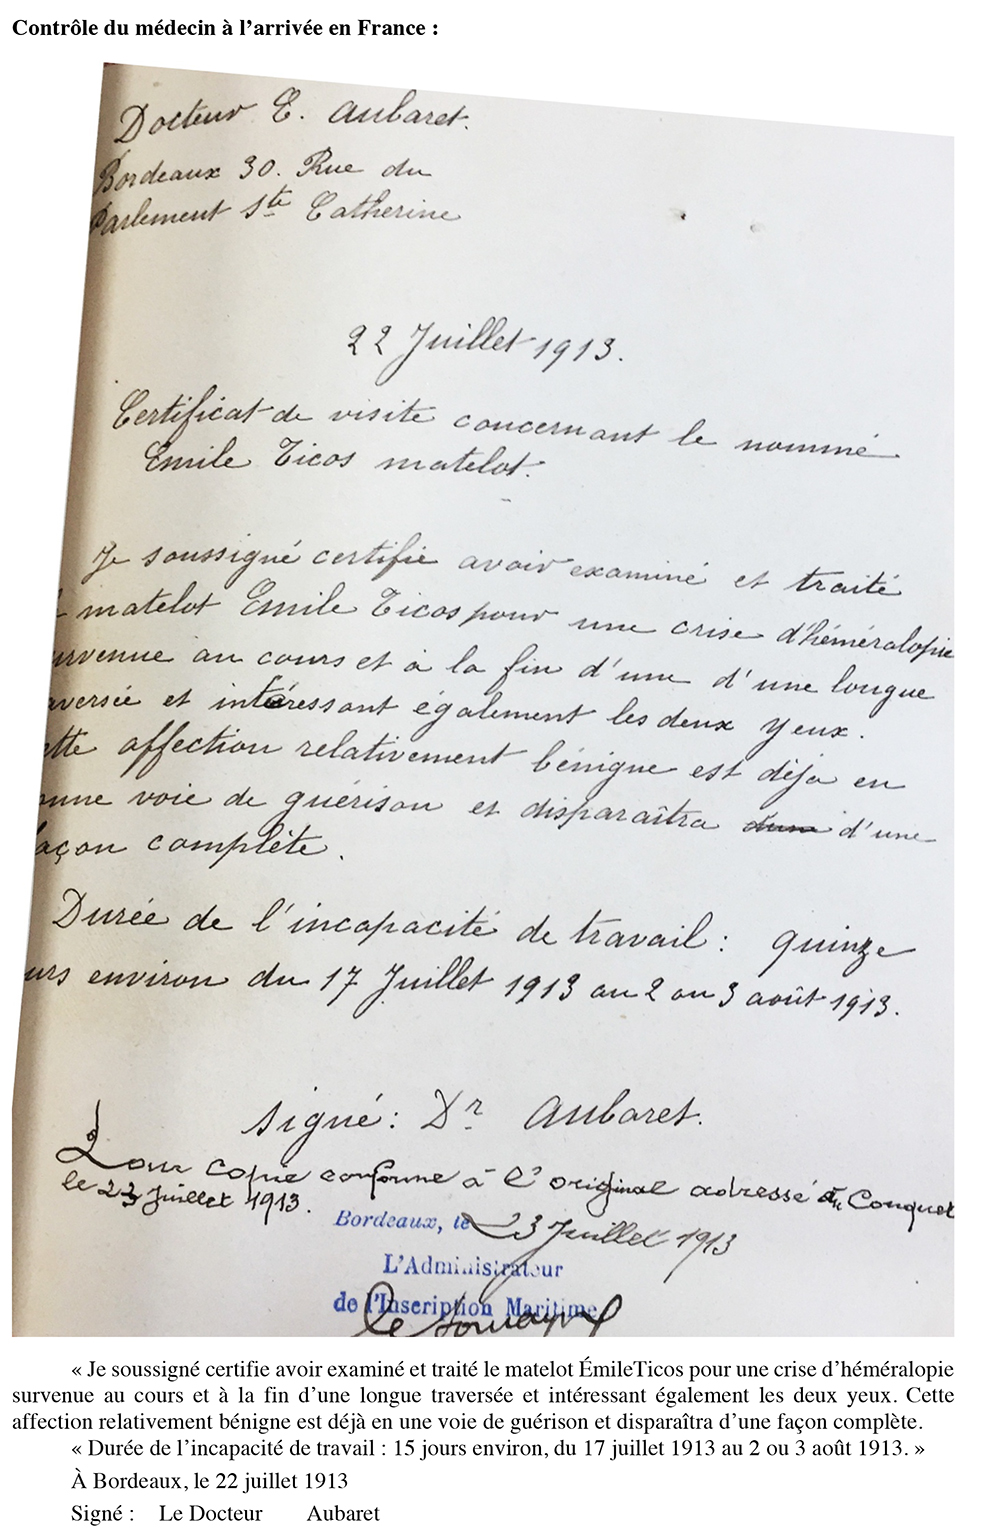 Contrôle du médecin à l’arrivée en France :
Docteur E. Aubaret.
Bordeaux 30. Rue du
Parlement Ste Catherine
22 Juillet 1913.
Certificat de visite concernant le nommé
Emile Ticos matelot.
Je soussigné certifie avoir examiné et traité
matelot Emile Ticos pour une crise d'héméralopie
urvenue au cours et à la fin d'une d'une longue
aversée et intéressant également les deux yeux.
ette affection relativement bénigne est déja en
onne voie de guérison et disparaîtra d'une
façon complète.
Durée de l'incapacité de travail : quinze
urs environ du 17 Juillet 1913 au 2 ou 3 août 1913.
Signé : Dr Aubaret.
Pour copie conforme à l'original adressé au Conquet
le 23 Juillet 1913.
Bordeaux, le 23 Juillet 1913
L'Administrateur
de l'Inscription Maritime
« Je soussigné certifie avoir examiné et traité le matelot ÉmileTicos pour une crise d’héméralopie
survenue au cours et à la fin d’une longue traversée et intéressant également les deux yeux. Cette
affection relativement bénigne est déjà en une voie de guérison et disparaîtra d’une façon complète.
« Durée de l’incapacité de travail : 15 jours environ, du 17 juillet 1913 au 2 ou 3 août 1913. »
À Bordeaux, le 22 juillet 1913
Signé : Le Docteur Aubaret